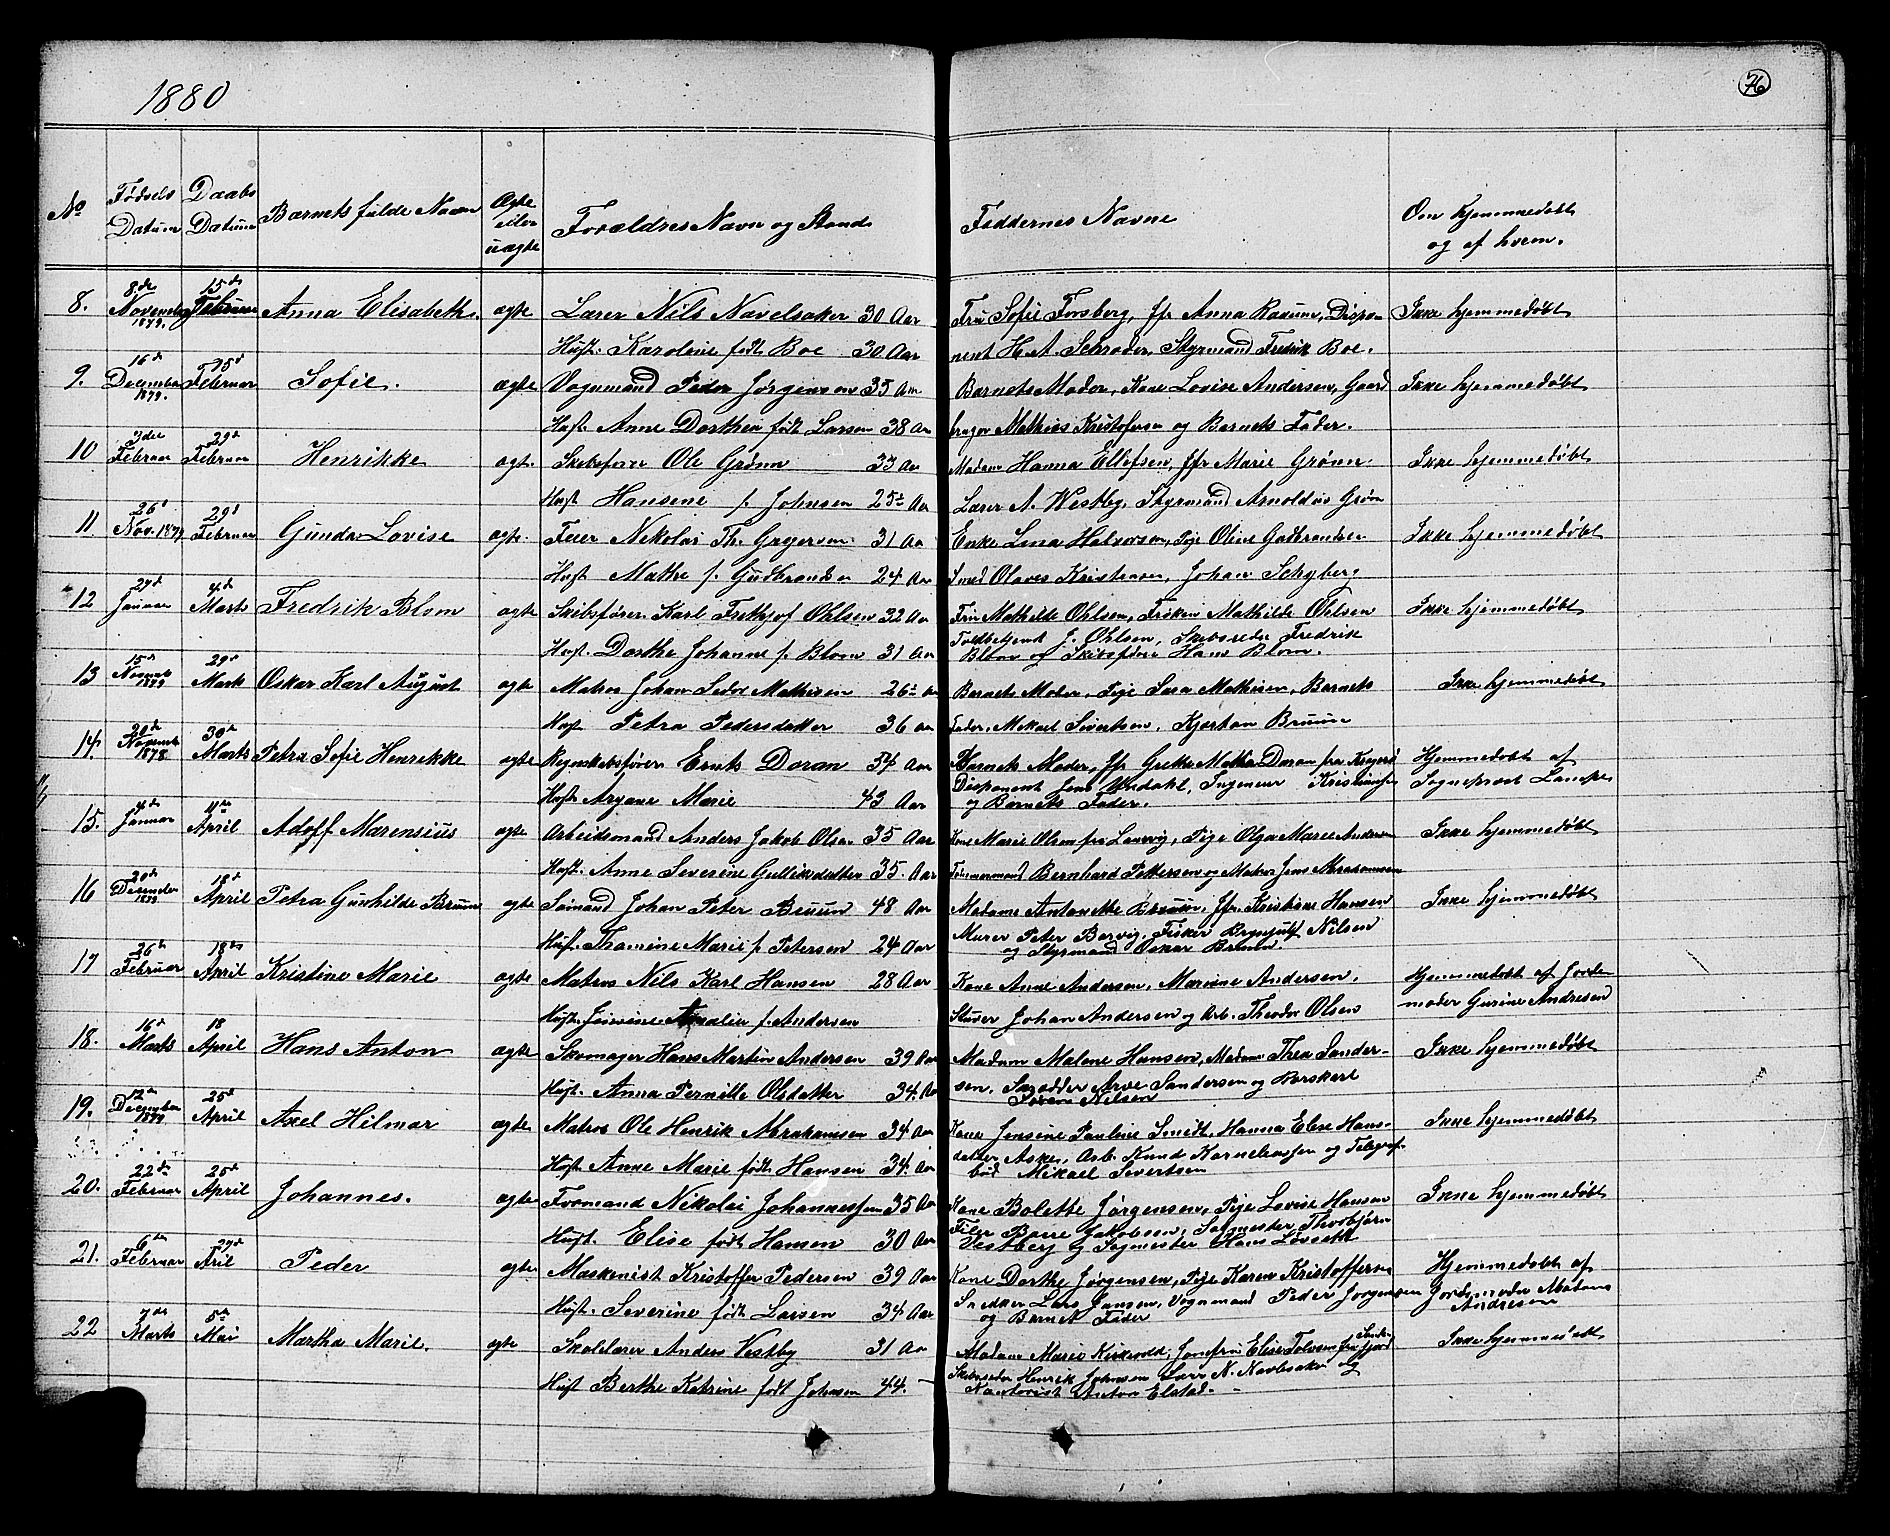 1880
76
No
Fødsels Datum
Daabs Datum
Barnets fulde Navn
Ægte eller uægte
Forældres Navn og Stand
Faddernes Navne
Om hjemmedøbt og af hvem.
8. 8de November 1879. 15de Februar Anna Elisabeth. ægte Lærer Nils Navelsaker 30 Aar Fru Sofie Forsberg, Jfr Anna Dispo- Ikke hjemmedøbt
Hust. Karoline født Boe 30 Aar nent H. A. Schrøder, Styrmand Fredrik Boe.
9. 16de December 1879. 15d Februar Sofie. ægte Vognmand Peder Jørgensen 35 Aar Barnets Moder, Kone Lovise Andersen, Gaard Ikke hjemmedøbt
Hust Anne Dorthea født Larsen 38 Aar bruger Mathias Kristofersen og Barnets Fader.
10 3die Februar 29d Februar Henrikke ægt. Skibsfører Ole Grönn 33 Aar Madam Hanna Ellefsen, Jfr Marie Grönn Ikke hjemmedøbt
Hust Hansene f. Johnsen 25 Aar Lærer A. Westby, Styrmand Arnoldus Grön
11 26d Nov. 1879 29d Februar Gunda Lovise ægte. Feier Nikolai Th. Gregersen 31 Aar Enke Lina Halvorsen, Pige Oline Gudbrandsen Ikke hjemmedøbt
Hust Mathe f. Gudbrandsen 24 Aar Smed Olaves Kristensen, Johan Schyberg
12 27d Januar 4de Marts Fredrik Blom ægte Skibsfører Karl Frithjof Ohlsen 32 Aar Fru Mathilde Ohlsen, Frøken Mathilde Ohlsen Ikke hjemmedøbt
Hust. Dorthe Johanne f. Blom 31 Aar Toldbetjent J. Ohlsen, Skibsreder Fredrik
Blom og Skibsfører Hans Blom.
13 15d Novemb 1879 29d Marts Oskar Karl August ægte Matros Johan Mathisen 26 Aar Barnets Moder, Pige Sara Mathisen, Barnets Ikke hjemmedøbt
Hust Petra Pedersdatter 36 Aar Fader, Mekael Sivertsen, Kjøstan Bruun
14. 20de November 1878 30d Marts Petra Sofie Henrikke ægte Regnskabsfører Ernts Doran 54 Aar Barnets Moder, Jfr Grethe Mathea Doran fra Kragerö Hjemmedøbt af
Hust. Aryane Marie 43 Aar Disponent Jens Updahl, Ingeniør Kristiansen Sogneprest Lampe
og Barnets Fader.
15. 4de Januar 11te April Adolf Marensius ægte Arbeidsmand Anders Jakob Olsen 35 Aar Kone Marie Olsen fra Laurvig, Pige Olga Marie Andersen Ikke hjemmedøbt
Hust. Anne Severine Gulliksdatter 35. Aar Tømmermand Bernhard Pettersen og Matros Jens Abrahamsen
16 20de December 1879 18d April Petra Gunhilde Bruun ægte Sømand Johan Peter Bruun 48 Aar Madame Antonette Bruun, Jfr. Kristine Hansen Ikke hjemmedøbt
Hust. Thomine Marie f. Petersen 24 Aar Murer Peter Borvig, Fisker Brynjulf Nilsen
og Styrmand Oskar Bruun
17 26de Februar 18de April Kristine Marie ægte Matros Nils Karl Hansen 28 Aar Kone Anne Andersen, Mariane Andersen. Hjemmedøbt af Jorde-
Hust. Amalia f. Andersen Stuver Johan Andersen og Arb. Theodor Olsen moder Gurine Andresen
18. 16d Marts 18 April Hans Anton ægte Skomager Hans Martin Andersen 39 Aar Madam Malene Hansen, Madam Thea Sander- Ikke hjemmedøbt
Hust. Anna Pernille Olsdatter 34. Aar sen, Arve Sandersen og
Søren Nilsen
19. 12te December 1879 25d April Axel Hilmar ægte Matros Ole Henrik Abrahamsen 34 Aar Kone Jensine Pauline Smidt, Hanna Elise Hans- Ikke hjemmedøbt
Hust. Anne Marie født Hansen 34 Aar datter Aske, Arb. Knud Kornelinssen og Telegraf-
bud Mikael Severtsen
20. 22de Februar 25d April Johannes. ægte Formand Nikolai Johannessen 35 Aar Kone Bolette Jørgensen, Pige Lovise Hansen Ikke hjemmedøbt
Hust. Elise født Hansen 30 Aar Jakobsen, Sagmester Thorbjørn
Vestberg og Sagmester Hans Løvseth
21. 6de Februar 27d Aril Peder ægte Maskenist Kristoffer Pedersen 39 Aar Kone Dorthe Jørgensen, Pige Karen Kristoffersen Hjemmedøbt af
Hust. Severine født Larsen 34 Aar Snedker Lars Jansen, Vognmand Peder Jørgensen Jordemoder Madam
og Barnet Fader Andresen
22 7de Marts 5te Mai Martha Marie. ægte Skolelærer Anders Vestby 31 Aar Madam Marie Kirkevold, Jomfru Elise Tolvsen fra Sandefjord Ikke hjemmedøbt
Hust Berthe Katrine født Johnsen 44. Skibsreder Henrik Johnsen Lærer N. Navelsaker og
Anton Elstad.